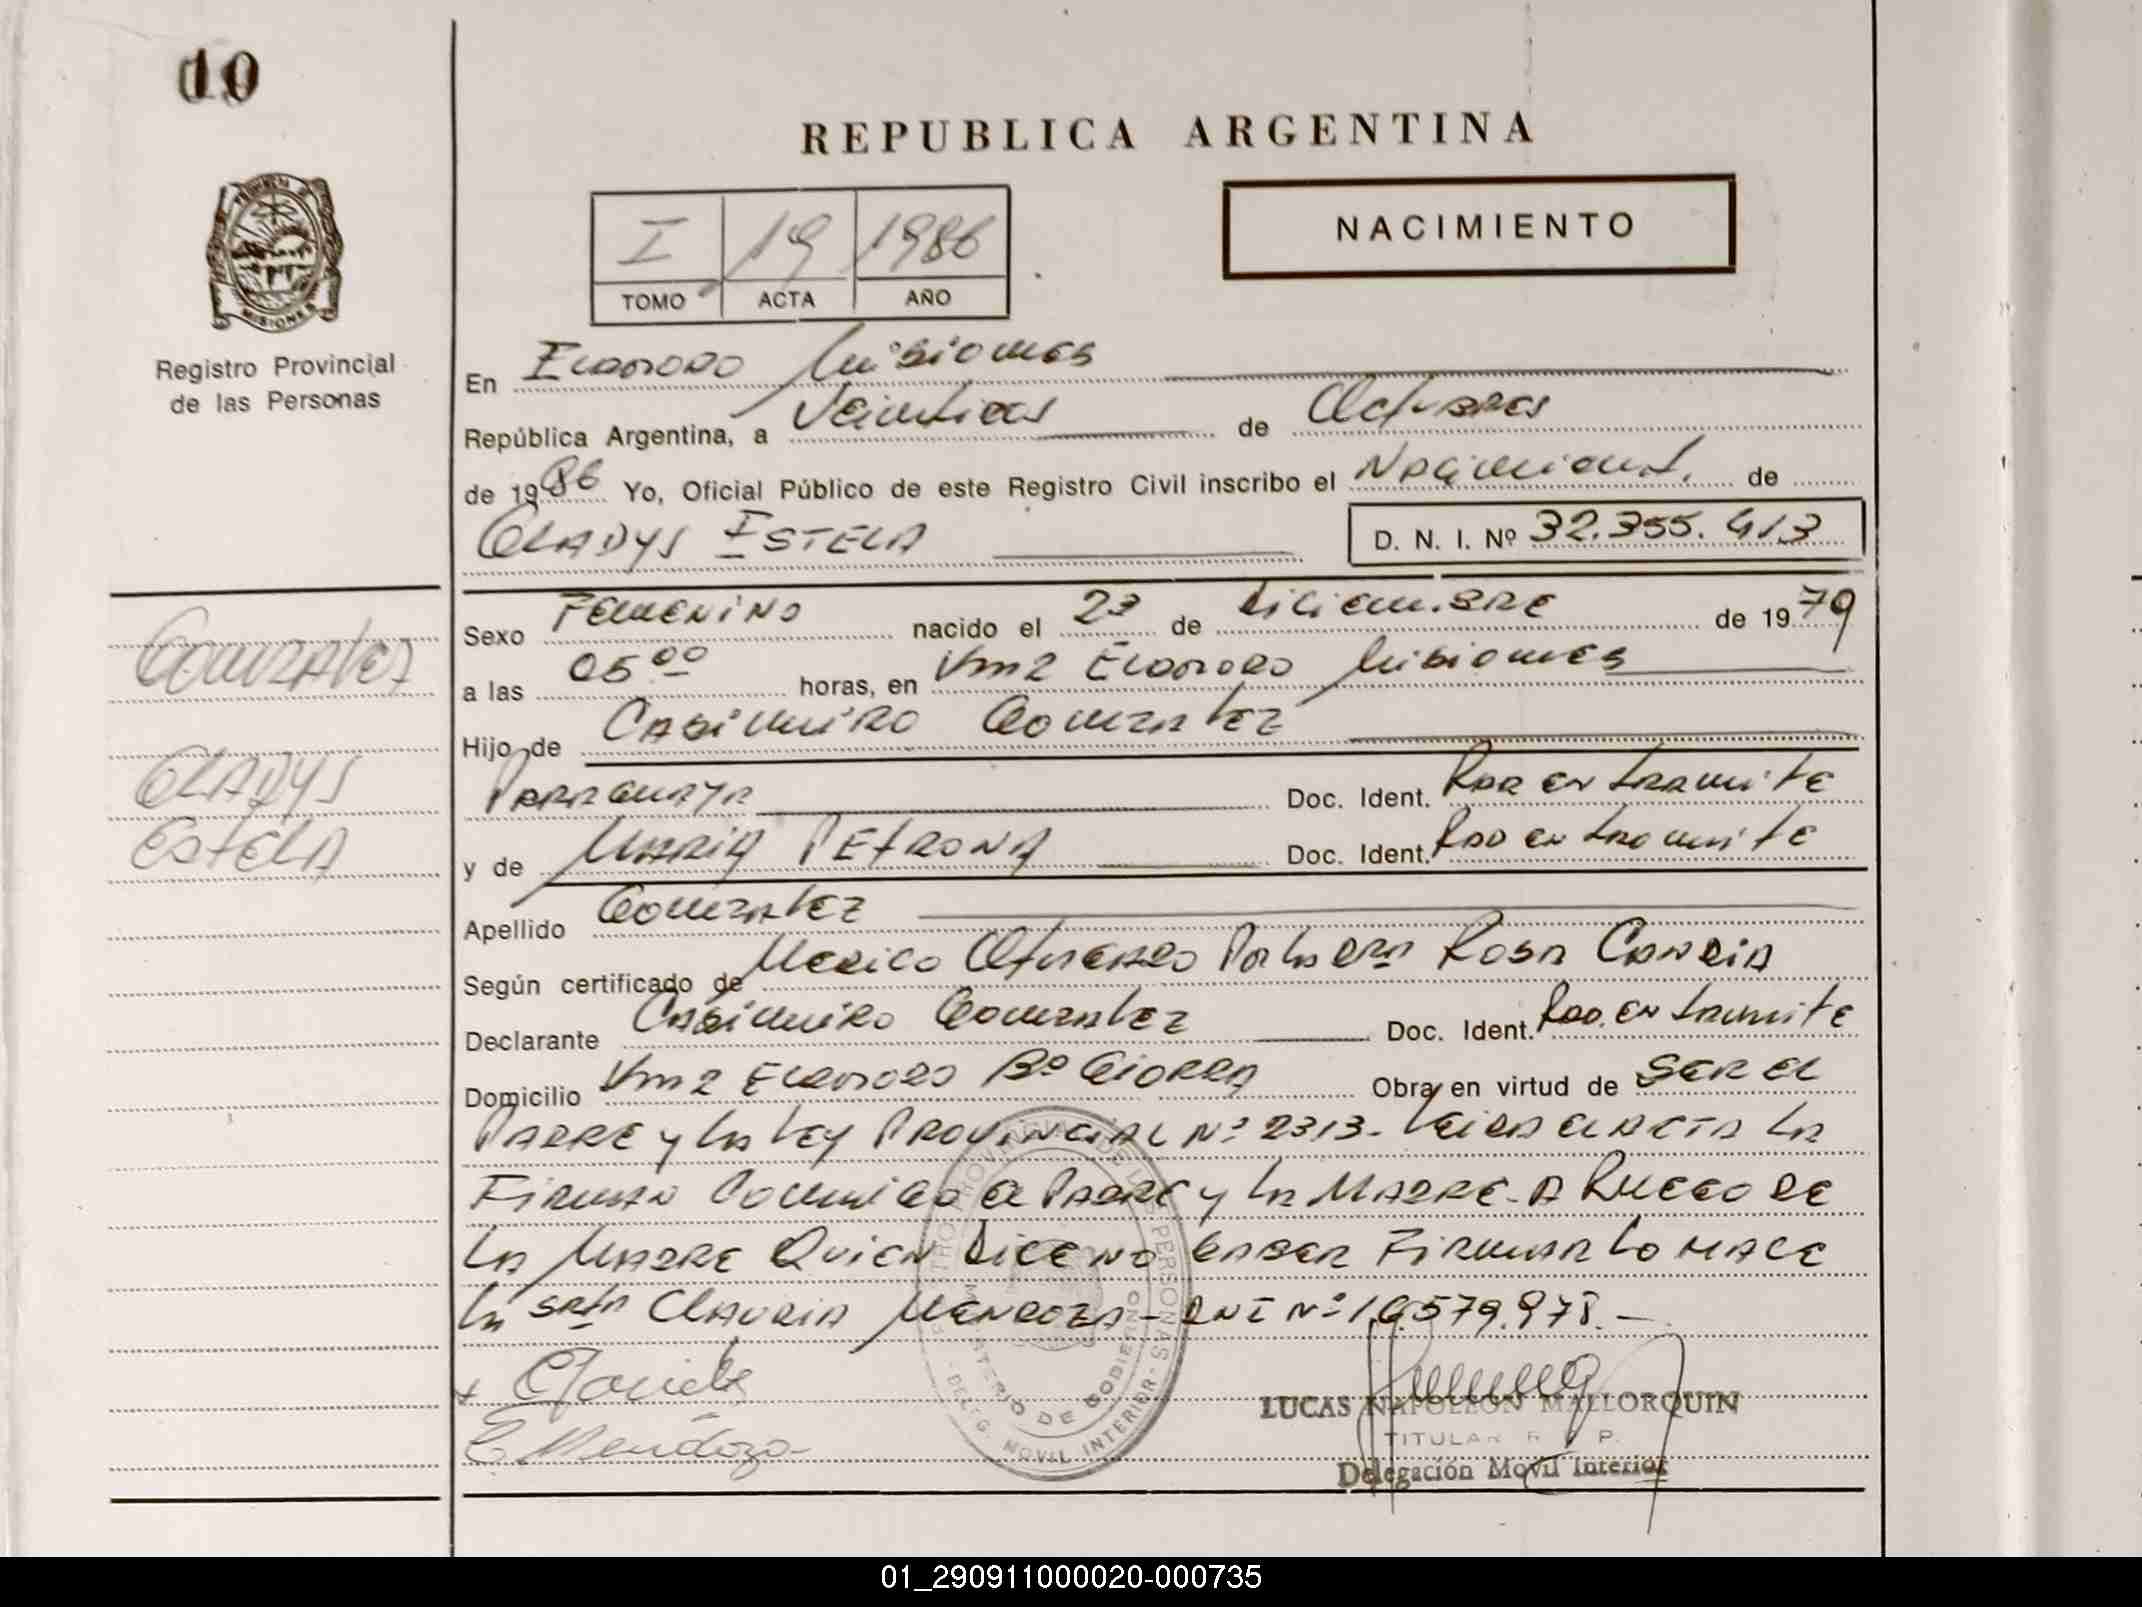 10
REPUBLICA ARGENTINA
PROVINCIA DE
MISIONES
Registro Provincial
de las Personas
I 19 1986
TOMO ACTA AÑO
NACIMIENTO
En Eldorado Misiones
República Argentina, a Veintidos de Octubre
de 1986 Yo, Oficial Público de este Registro Civil inscribo el Nacimient. de
GLADYS ESTELA D. N. I. Nº 32.355.413
Sexo Femenino nacido el 23 de Diciembre de 1979
a las 05 00 horas, en Km2 Eldorado Misiones
Hijo de Casimiro Gonzalez
Paraguaya Doc. Ident. Rad en tramite
y de Maria Petrona Doc. Ident. Rad en tramite
Apellido Gonzalez
Según certificado de Medico Otorgado Por la Dra Rosa Candia
Declarante Casimiro Gonzalez Doc. Ident. Rad. en tramite
Domicilio Km2 Eldorado Bº Obra en virtud de Ser el
Padre y la Ley Provincial Nº 2313- Leida el Acta la
Firman Conmigo el Padre y la Madre- A Ruego de
la Madre Quien Dice no Saber Firmar lo Hace
la Srta Claudia Mendoza- DNI Nº 16.579.978.-
Gonzalez
Gladys
Estela
C Mendoza
LUCAS NAPOLEON MALLORQUIN
TITULAR R P.
Delegación Movil Interior
REGISTRO PROVINCIAL DE LAS PERSONAS
MINISTERIO DE GOBIERNO
DELEG. MOVIL INTERIOR
01_290911000020-000735